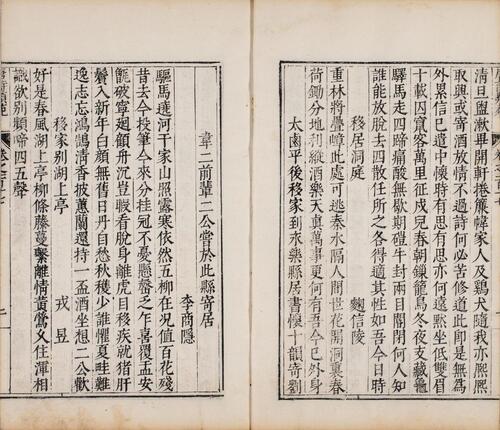 清旦盥漱畢開軒捲簾幃家人及雞犬隨我亦熙熙
取興或寄酒放情不過詩何必苦修道此即是無為
外累信已遣中懷時有思有思亦何遠黙坐低雙眉
十載囚竄客萬里征戍兒春朝鏁籠鳥冬夜支藏龜
驛馬走四蹄痛酸無歇期磑牛封兩目閽閉何人知
誰能放脫去四散任所之各得適其性如吾今日時
移居洞庭 麴信陵
重林將疊嶂此處可逃秦水隔人間世花開洞裏春
荷鋤分地利縱酒樂天真萬事更何有吾今已外身
大鹵平後移家到永樂縣居書懷十韻寄劉
韋二前輩二公嘗於此縣寄居
李商隱
驅馬遶河干家山照露寒依然五柳在況值百花殘
昔去今投筆今來分挂冠不憂懸罄之乍喜覆盂安
甑破寧廻顧舟沉豈暇看脫身離虎目移疾就猪肝
鬢入新年白顏無舊日丹自愁秋穫少誰懼夏畦難
逸志忘鴻鵠清香披蕙蘭還持一盃酒坐想二公歡
移家別湖上亭 戎昱
好是春風湖上亭柳條藤蔓繫離情黃鶯久住渾相
識欲別頻啼四五聲